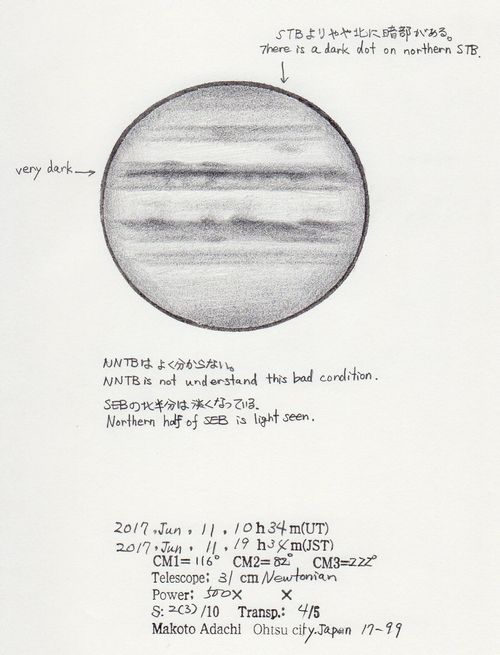 STBよりやや北に暗部がある。
There is a dark dot on northern STB.
very dark
NNTBはよく分からない。
NNTB is not understand this bad condition.
SEBの北半分は淡くなっている.
Northern half of SEB is light seen.
2017, Jun, 11, 10 h 34 m(UT)
2017, Jun, 11, 19 h 34 m(JST)
CM1= 116° CM2= 82° CM3=222°
Telescope: 31 cm Newtonian
Power: 500× ×
S: 2(3)/10 Transp.: 4/5
Makoto Adachi Ohtsu city.Japan 17-99